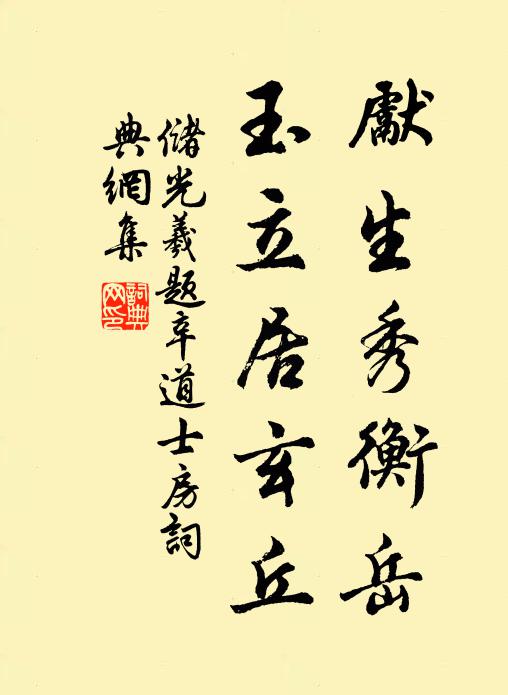 獻生秀衡岳
玉立居玄丘
儲光羲题辛道士房詞
典網集
詞典
网印